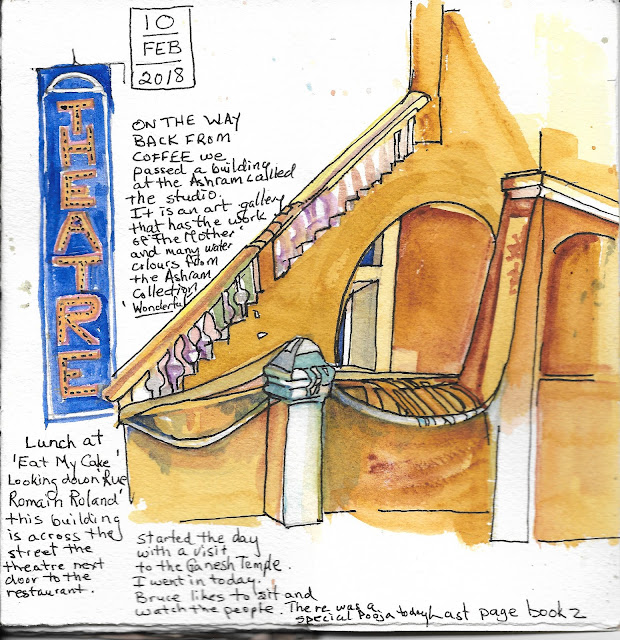 10
FEB
2018
THEATRE
ON THE WAY
BACK FROM
COFFEE we
passed a building
at the Ashram called
the studio.
It is an art gallery
that has the work
of 'The Mother'
and many water
colours from
the Ashram
Collection
'Wonderful'
Lunch at
'Eat My Cake'
Looking down Rue
Romain Roland'
this building
is across the
street the
theatre next
door to the
restaurant.
started the day
with a visit
to the Ganesh Temple.
I went in today.
Bruce likes to sit and
watch the people. There was a
special Pooja today
Last page book 2